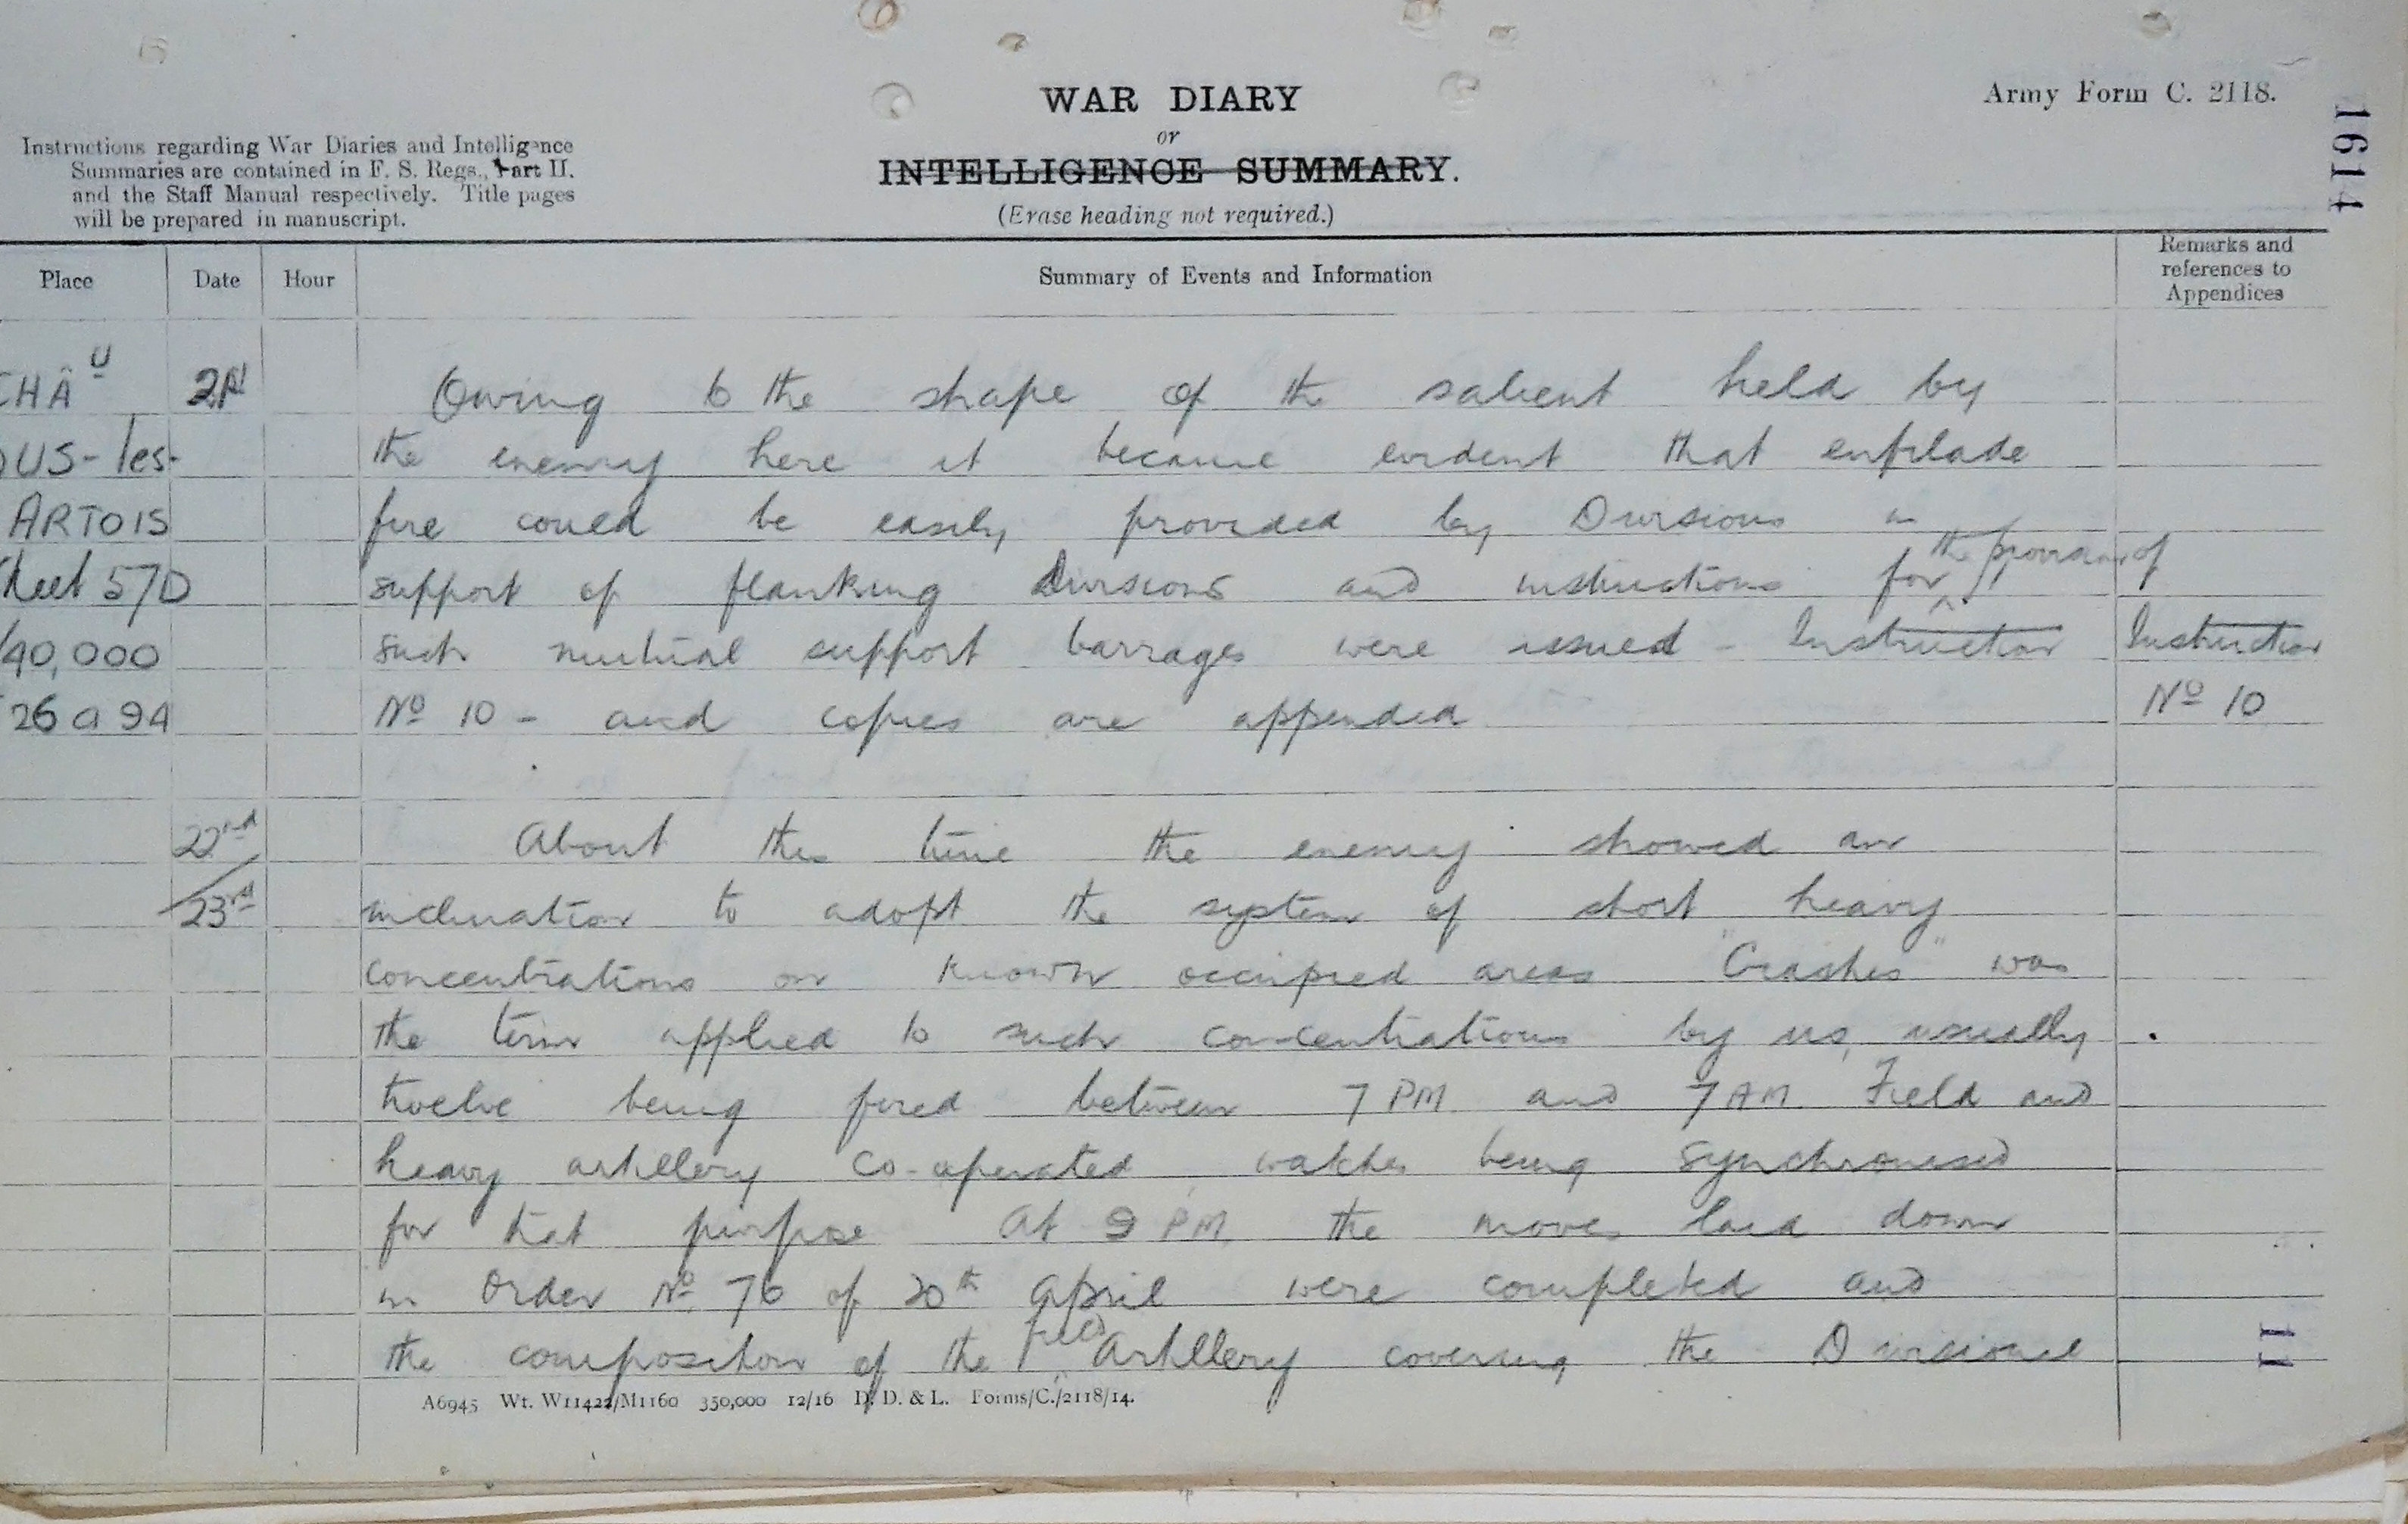 Army Form C. 2118.
1614
WAR DIARY
or
INTELLIGENCE SUMMARY.
(Erase heading not required.)
Instructions regarding War Diaries and Intelligence
Summaries are contained in F. S. Regs., Part II.
and the Staff Manual respectively. Title pages
will be prepared in manuscript.
Place Date Hour Summary of Events and Information Remarks and references to Appendices
CHÂU Owing to the shape of the salient held by
OUS-les- the enemy here it became evident that enfilade
ARTOIS fire could be easily provided by Divisions in
Sheet 57D support of flanking Divisions and instructions for the provision of
/40,000 such mutual support barrages were issued - Instruction Instruction
26 a 94 Nº 10 - and copies are appended Nº 10
22nd About this time the enemy showed an
23rd inclination to adopt the system of short heavy
concentrations on known occupied areas "Crashes" was
the term applied to such concentrations by us, usually
twelve being fired between 7 PM and 7 AM. Field and
heavy artillery co-operated, watches being synchronised
for that purpose At 9 PM. the moves laid down
in Order Nº 76 of 20th April were completed and
the composition of the Field Artillery covering the Divisional
11
A6945 Wt. W11422/M1160 350,000 12/16 D. D. & L. Forms/C./2118/14.